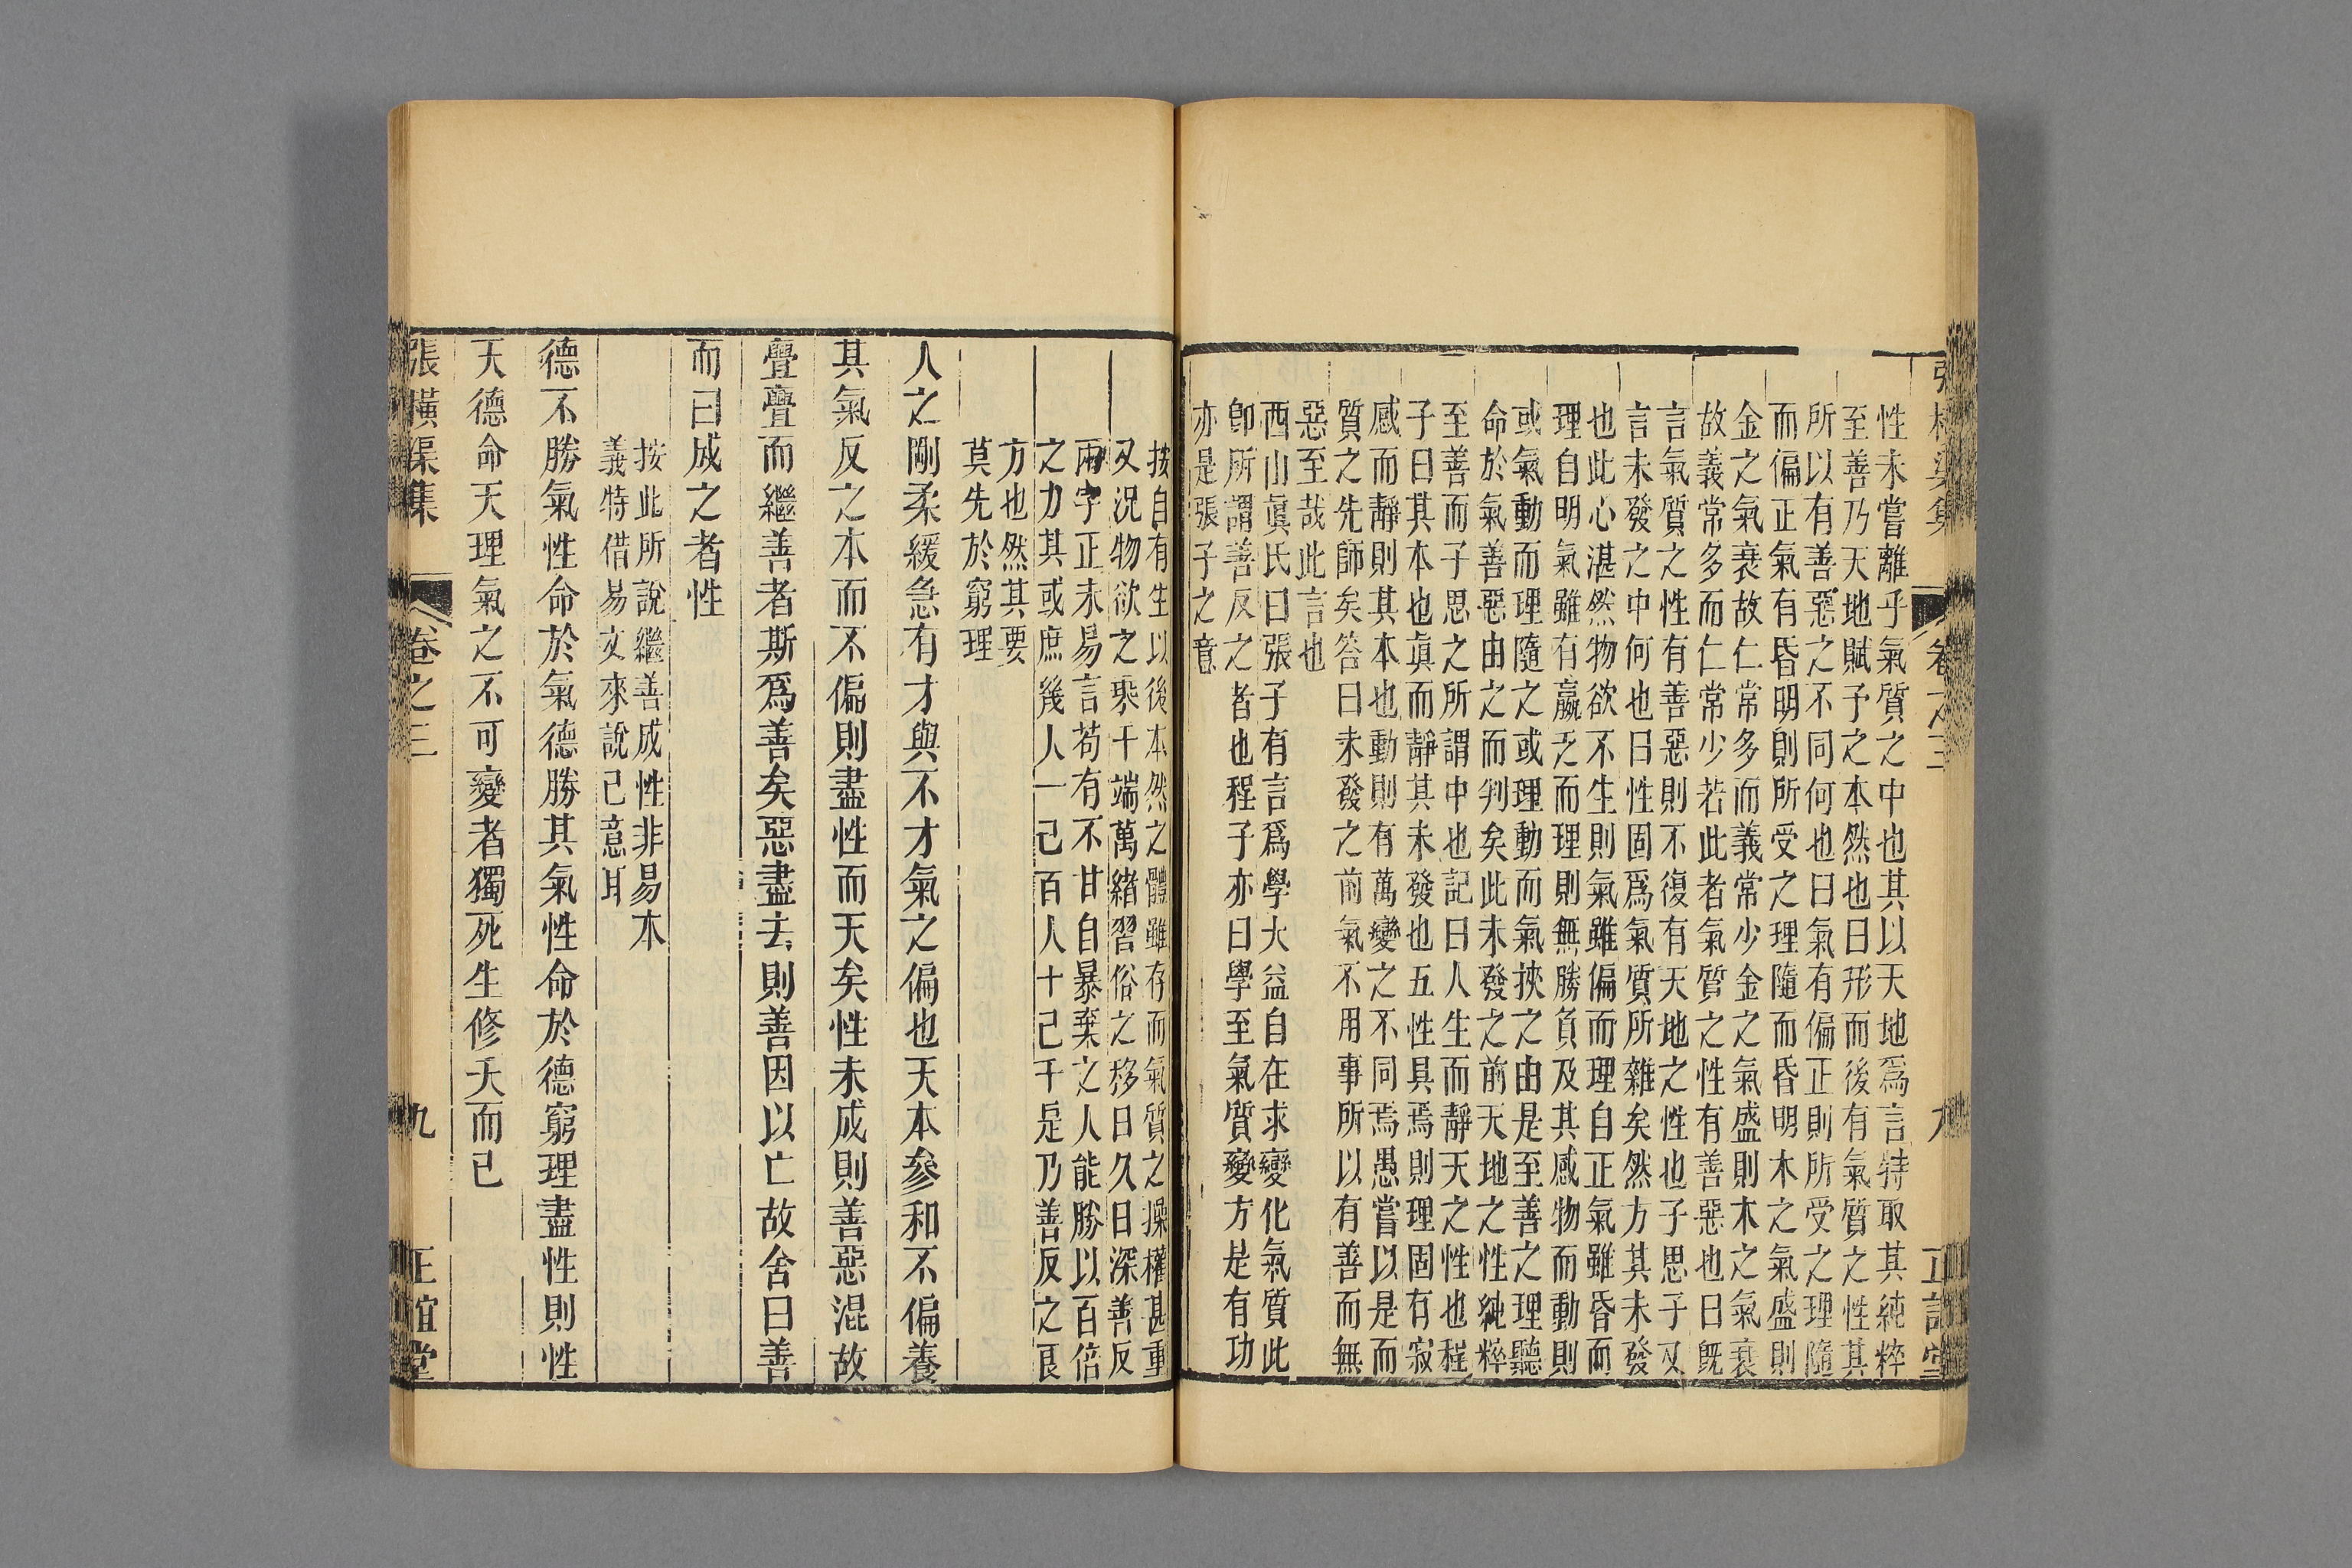 性未嘗離乎氣質之中也其以天地爲言特取其純粹
至善乃天地賦予之本然也曰形而後有氣質之性其
所以有善惡之不同何也曰氣有偏正則所受之理隨
而偏正氣有昏明則所受之理隨而昏明木之氣盛則
金之氣衰故仁常多而義常少金之氣盛則木之氣衰
故義常多而仁常少若此者氣質之性有善惡也曰旣
言氣質之性有善惡則不復有天地之性也子思子又
言未發之中何也曰性固爲氣質所雜矣然方其未發
也此心湛然物欲不生則氣雖偏而理自正氣雖昏而
理自明氣雖有嬴乏而理則無勝負及其感物而動則
或氣動而理隨之或理動而氣挾之由是至善之理聽
命於氣善惡由之而判矣此未發之前天地之性純粹
至善而子思之所謂中也記曰人生而靜天之性也程
子曰其本也眞而靜其未發也五性具焉則理固有寂
感而靜則其本也動則有萬變之不同焉愚嘗以是而
質之先師矣答曰未發之前氣不用事所以有善而無
惡至哉此言也
西山眞氏曰張子有言爲學大益自在求變化氣質此
卽所謂善反之者也程子亦曰學至氣質變方是有功
亦是張子之意
張橫渠集 卷之三 九 正誼堂
按自有生以後本然之體雖存而氣質之操權甚重
又況物欲之乘千端萬緒習俗之移日久日深善反
兩字正未易言苟有不甘自暴棄之人能勝以百倍
之力其或庶幾人一己百人十己千是乃善反之良
方也然其要
莫先於窮理
人之剛柔緩急有才與不才氣之偏也天本參和不偏養
其氣反之本而不偏則盡性而天矣性未成則善惡混故
亹亹而繼善者斯爲善矣惡盡去則善因以亡故舍曰善
而曰成之者性
按此所說繼善成性非易本
義特借易文來說己意耳
德不勝氣性命於氣德勝其氣性命於德窮理盡性則性
天德命天理氣之不可變者獨死生修夭而已
張橫渠集 卷之三 九 正誼堂